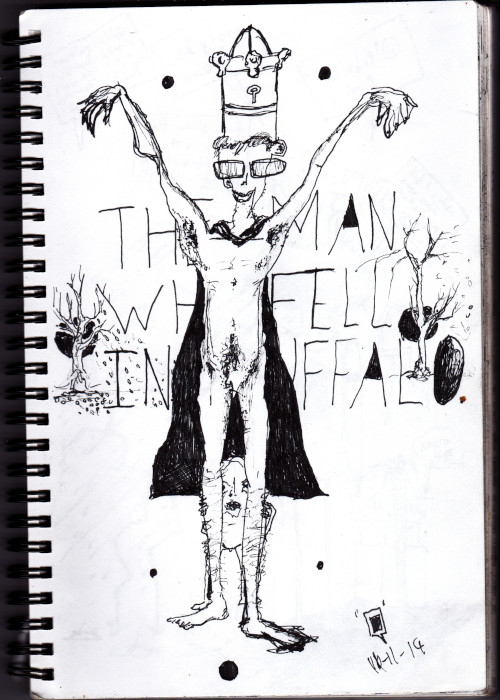 THE MAN
WH FELL
IN UFFALO.